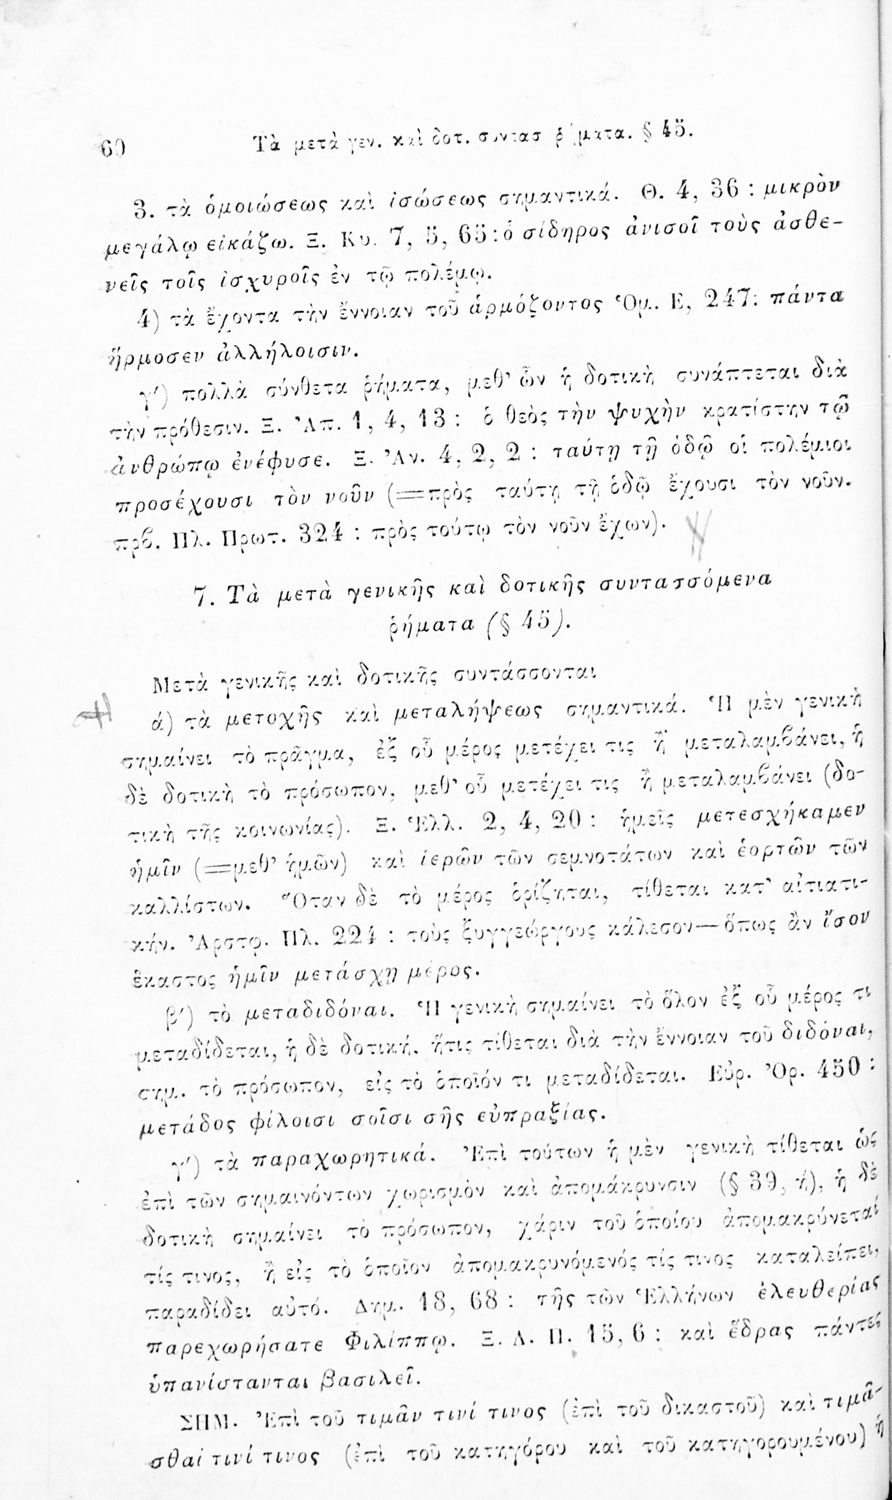 60 Τὰ μετὰ γεν. καὶ δοτ. συντασ ῥήματα. § 45.
3. τὰ ὁμοιώσεως καὶ ἰσώσεως σημαντικά. Θ. 4, 36 : μικρὸν
μεγάλῳ εἰκάζω. Ξ. Κυ. 7, 5, 65 : ὁ σίδηρος ἀνισοῖ τοὺς ἀσθε-
νεῖς τοῖς ἰσχυροῖς ἐν τῷ πολέμῳ.
4) τὰ ἔχοντα τὴν ἔννοιαν τοῦ ἁρμόζοντος Ὁμ. Ε, 247: πάντα
ἥρμοσεν ἀλλήλοισιν.
γ') πολλὰ σύνθετα ῥήματα, μεθ' ὧν ἡ δοτικὴ συνάπτεται διὰ
τὴν πρόθεσιν. Ξ. Ἀπ. 1, 4, 13 : ὁ θεὸς τὴν ψυχὴν κρατίστην τῷ
ἀνθρώπῳ ἐνέφυσε. Ξ. Ἀν. 4, 2, 2 : ταύτῃ τῇ ὁδῷ οἱ πολέμιοι
προσέχουσι τὸν νοῦν (=πρὸς ταύτῃ τῇ ὁδῷ ἔχουσι τὸν νοῦν.
πρβ. Πλ. Πρωτ. 324 : πρὸς τούτῳ τὸν νοῦν ἔχων).
7. Τὰ μετὰ γενικῆς καὶ δοτικῆς συντασσόμενα
ῥήματα (§ 45).
Μετὰ γενικῆς καὶ δοτικῆς συντάσσονται
ά) τὰ μετοχῆς καὶ μεταλήψεως σημαντικά. Ἡ μὲν γενικὴ
σημαίνει τὸ πρᾶγμα, ἐξ οὗ μέρος μετέχει τις ἢ μεταλαμβάνει, ἡ
δὲ δοτικὴ τὸ πρόσωπον, μεθ' οὗ μετέχει τις ἢ μεταλαμβάνει (δο-
τικὴ τῆς κοινωνίας). Ξ. Ἑλλ. 2, 4, 20 : ἡμεῖς μετεσχήκαμεν
ἡμῖν (=μεθ' ἡμῶν) καὶ ἱερῶν τῶν σεμνοτάτων καὶ ἑορτῶν τῶν
καλλίστων. Ὅταν δὲ τὸ μέρος ὁρίζηται, τίθεται κατ' αἰτιατι-
κήν. Ἀρστφ. Πλ. 224 : τοὺς ξυγγεώργους κάλεσον—ὅπως ἂν ἴσον
ἕκαστος ἡμῖν μετάσχῃ μέρος.
β') τὸ μεταδιδόναι. Ἡ γενικὴ σημαίνει τὸ ὅλον ἐξ οὗ μέρος τι
μεταδίδεται, ἡ δὲ δοτική, ἥτις τίθεται διὰ τὴν ἔννοιαν τοῦ διδόναι,
σημ. τὸ πρόσωπον, εἰς τὸ ὁποῖόν τι μεταδίδεται. Εὐρ. Ὀρ. 450 :
μετάδος φίλοισι σοῖσι σῆς εὐπραξίας.
γ') τὰ παραχωρητικά. Ἐπὶ τούτων ἡ μὲν γενικὴ τίθεται ὡς
ἐπὶ τῶν σημαινόντων χωρισμὸν καὶ ἀπομάκρυνσιν (§ 39, ή), ἡ δὲ
δοτικὴ σημαίνει τὸ πρόσωπον, χάριν τοῦ ὁποίου ἀπομακρύνεταί
τίς τινος, ἢ εἰς τὸ ὁποῖον ἀπομακρυνόμενός τίς τινος καταλείπει,
παραδίδει αὐτό. Δημ. 18, 68 : τῆς τῶν Ἑλλήνων ἐλευθερίας
παρεχωρήσατε Φιλίππῳ. Ξ. Λ. Π. 15, 6 : καὶ ἕδρας πάντες
ὑπανίστανται βασιλεῖ.
ΣΗΜ. Ἐπὶ τοῦ τιμᾶν τινί τινος (ἐπὶ τοῦ δικαστοῦ) καὶ τιμᾶ-
σθαί τινί τινος (ἐπὶ τοῦ κατηγόρου καὶ τοῦ κατηγορουμένου) ἡ